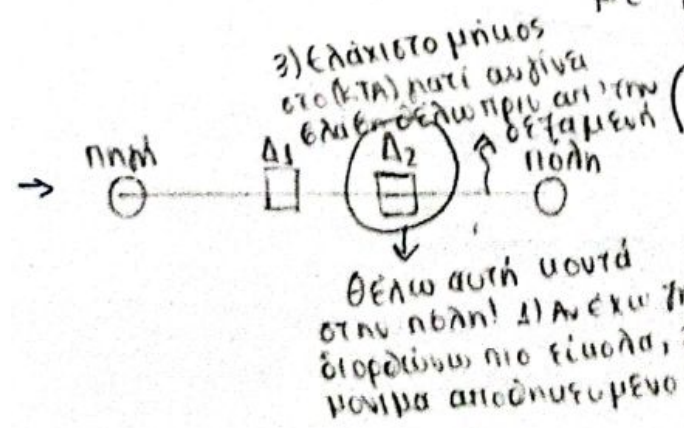 με
3) Ελάχιστο μήκος
στο (ΚΤΑ) γιατί αν γίνει
θέλω πριν απ' την
δεξαμενή
πηγή Δ1 Δ2 πόλη
θέλω αυτή κοντά
στην πόλη! 1) Αν έχω
διορθώνω πιο εύκολα,
μόνιμα αποθηκευμένο